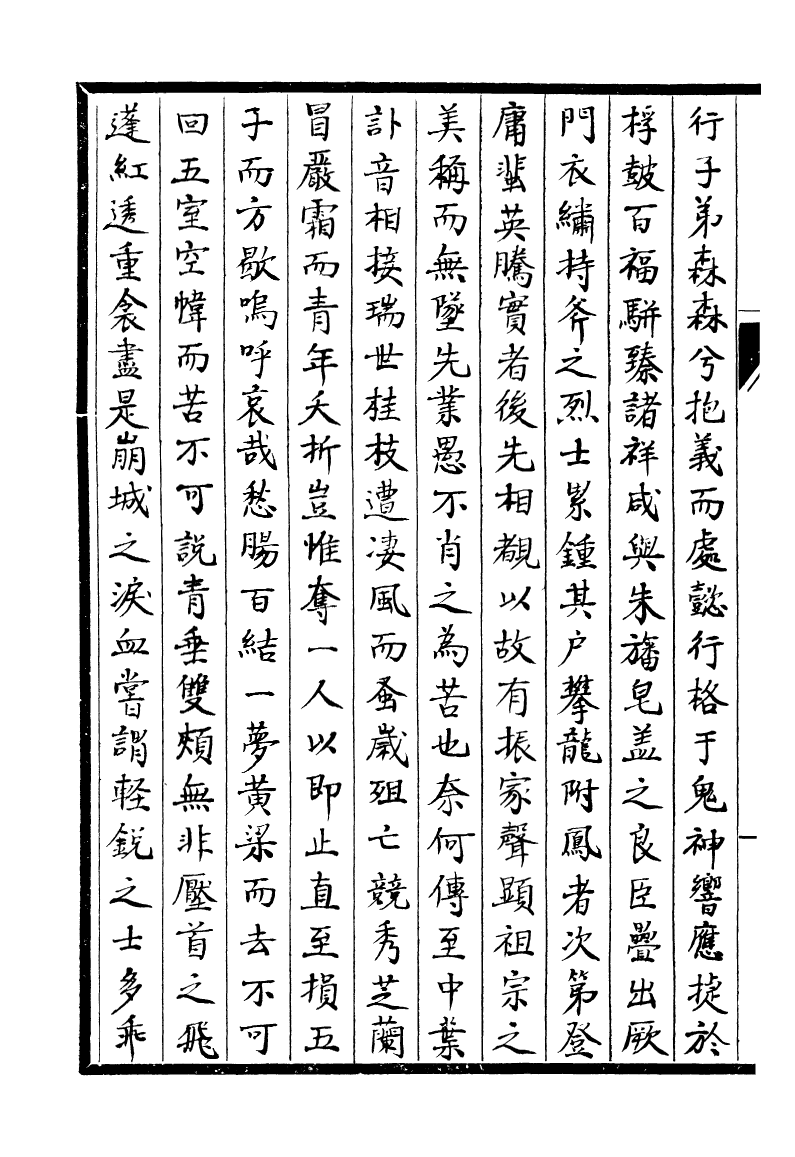 行子弟森森兮抱義而處懿行格于鬼神響應捷於
桴鼓百福駢臻諸祥咸與朱旛皂盖之良臣疊出厥
門衣繡持斧之烈士累鍾其户攀龍附鳳者次第登
庸蜚英騰實者後先相覩以故有振家聲顯祖宗之
美稱而無墜先業愚不肖之為苦也奈何傳至中葉
訃音相接瑞世桂枝遭凄風而蚤歲殂亡競秀芝蘭
冒嚴霜而青年夭折豈惟奪一人以即止直至損五
子而方歇嗚呼哀哉愁腸百結一夢黄梁而去不可
回五室空幃而苦不可説青垂雙頰無非壓首之飛
蓬紅透重衾盡是崩城之淚血嘗謂輕鋭之士多乖